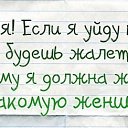 я! Если я уйду
будешь жалет
му я должна ж
акомую женщ